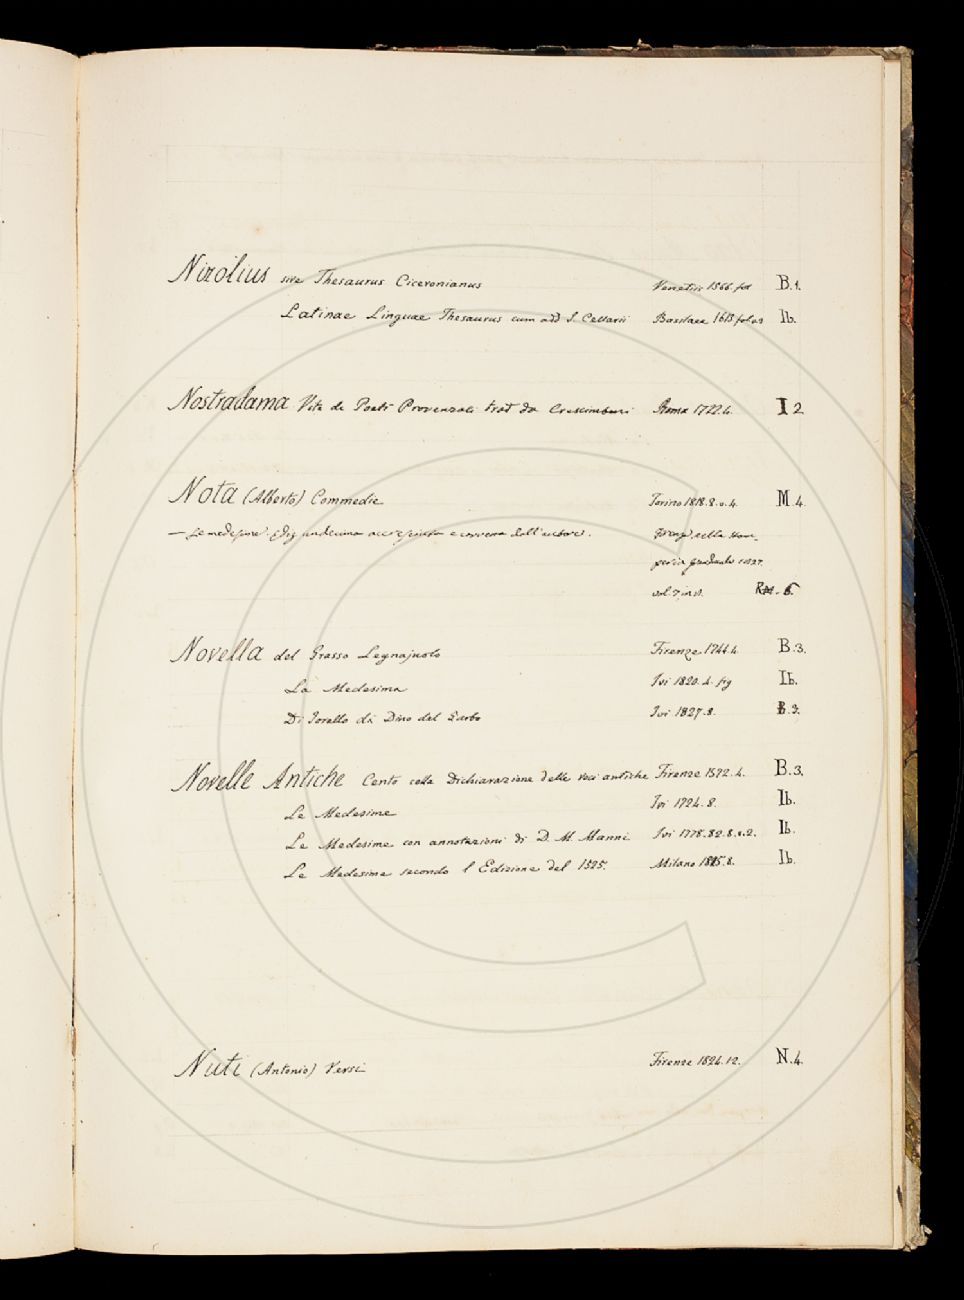 Nizolius sive Thesaurus Ciceronianus Venetiis 1566. fol B.1.
Latinae Linguae Thesaurus cum add J. Cellarii Basileae 1613 fol Ib.
Nostradama Vite de Poeti Provenzali trad da Crescimbeni Roma 1722.4. I 2
Nota (Alberto) Commedie Torino 1818.8.v.4. M.4.
— Le medesime. Ediz undecima accresciuta e corretta dall'autore. Firenze nella Stam
peria Granducale 1827.
vol. 7, in 8. 6.
Novella del Grasso Legnajuolo Firenze 1744.4. B.3.
La Medesima Ivi 1820.4. fig Ib.
Di Torello di Dino del Garbo Ivi 1827.8. B.3.
Novelle Antiche Cento colla Dichiarazione delle voci antiche Firenze 1572.4. B.3.
Le Medesime Ivi 1724.8. Ib.
Le Medesime con annotazioni di D. M. Manni Ivi 1778.82.8.v.2. Ib.
Le Medesime secondo l'Edizione del 1525. Milano 8. Ib.
Nuti (Antonio) Versi Firenze 1824.12. N.4.